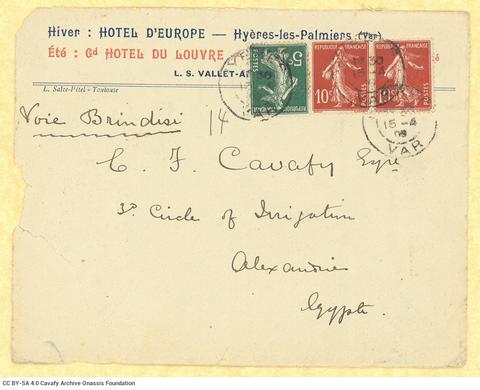 Hiver : HOTEL D'EUROPE — Hyères-les-Palmiers (Var)
Été : Gd HOTEL DU LOUVRE
L. S. VALLET-A
L. Salze-Pétel - Toulouse
5c POSTES
REPUBLIQUE FRANÇAISE 10c POSTES
REPUBLIQUE FRANÇAISE 10c POSTES
15 - 4
VAR
Voie Brindisi
14
C. F. Cavafy Esqre
3º Circle of Irrigation
Alexandrie
Egypte.
CC BY-SA 4.0 Cavafy Archive Onassis Foundation